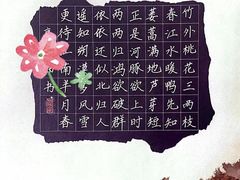 竹外桃花三两枝
春江水暖鸭先知
蒌蒿满地芦芽短
正是河豚欲上时
两两归鸿欲破群
依依还似北归人
遥知朔漠风雪
更待南半月春